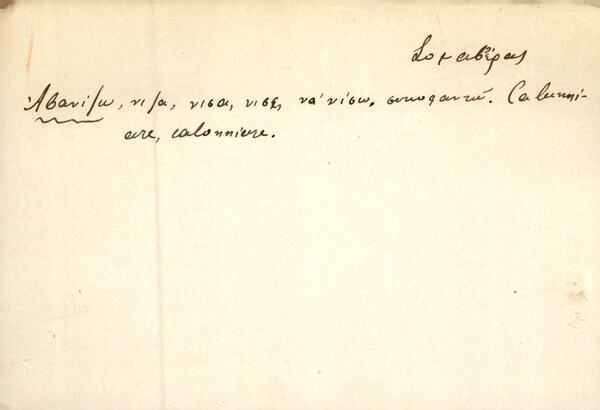 Σομαβέρας
Ἀβανίζω, νιζα, νισα, νισε, νὰ νίσω. συκοφαντῶ. Calunni-
are, calonniare.